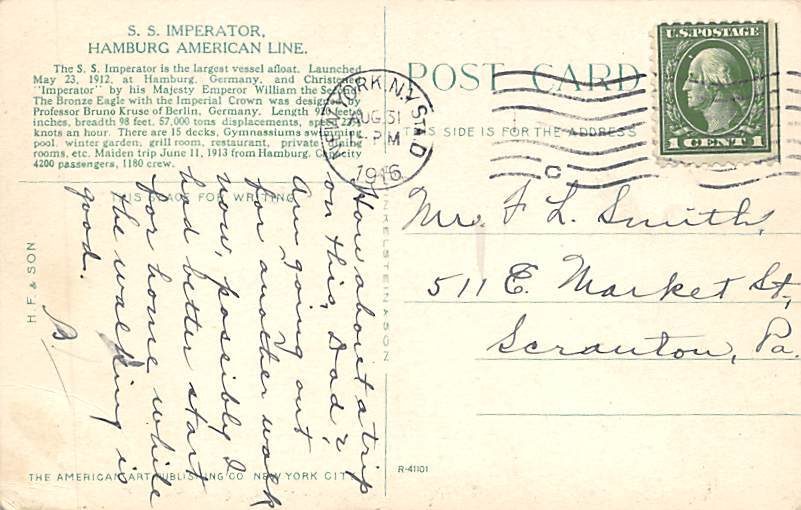 S. S. IMPERATOR,
HAMBURG AMERICAN LINE.
The S. S. Imperator is the largest vessel afloat. Launched
May 23, 1912, at Hamburg, Germany, and Christened
"Imperator" by his Majesty Emperor William the Second.
The Bronze Eagle with the Imperial Crown was designed by
Professor Bruno Kruse of Berlin, Germany. Length feet
inches, breadth 98 feet, 57,000 tons displacements, speed
knots an hour. There are 15 decks, Gymnassiums swimming
pool, winter garden, grill room, restaurant, private dining
rooms, etc. Maiden trip June 11, 1913 from Hamburg. Capacity
4200 passengers, 1180 crew.
THIS SPACE FOR WRITING
How about a trip
on this, Dad?
Am going out
for another walk
now, possibly I
had better start
for home while
the walking is
good.
B.
H. F. & SON
FINKELSTEIN & SON
THE AMERICAN ART PUBLISHING CO. NEW YORK CITY
R-41101
POST CARD
THIS SIDE IS FOR THE ADDRESS
NEW YORK, N.Y. STA D
AUG 31
PM
1916
C
U.S. POSTAGE
1 CENT 1
Mr. F L. Smith,
511 E. Market St,
Scranton, Pa.